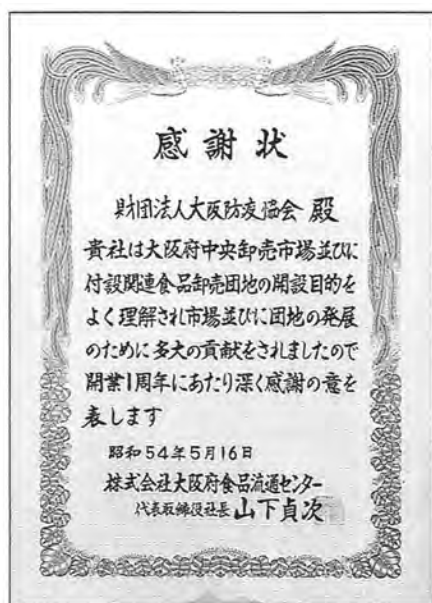 感謝状
財団法人大阪防疫協会 殿
貴社は大阪府中央卸売市場並びに
付設関連食品卸売団地の開設目的を
よく理解され市場並びに団地の発展
のために多大の貢献をされましたので
開業1周年にあたり深く感謝の意を
表します
昭和54年5月16日
株式会社大阪府食品流通センター
代表取締役社長 山下貞次